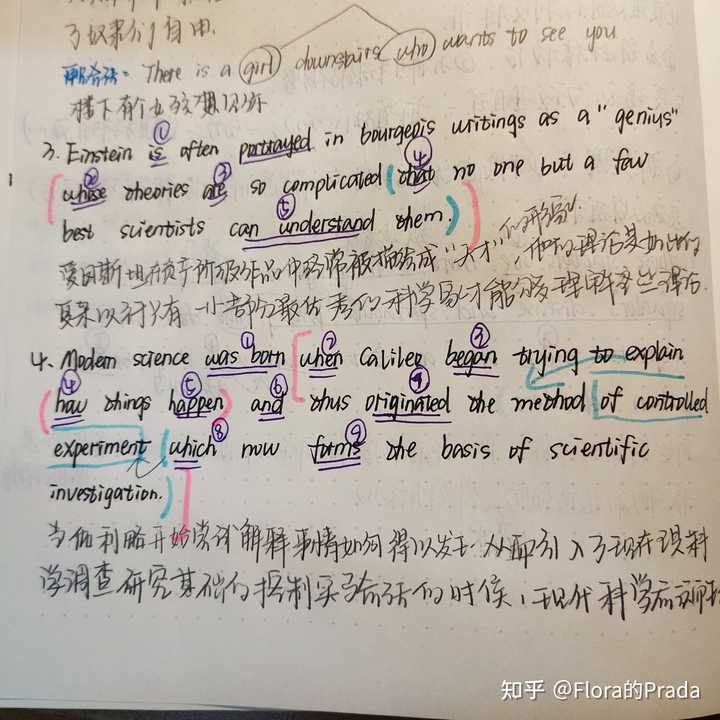 了奴隶们自由.
There is a girl downstairs who wants to see you
楼下有个女孩想见你
① ③ ④
3. Einstein is often portrayed in bourgeois writings as a "genius"
② whose theories are so complicated (that no one but a few
⑤
best scientists can understand them.)
爱因斯坦在资产阶级作品中经常被描绘成"天才"的形象, 他的理论是如此的
复杂以
① ② ③
4. Modern science was born when Galileo began trying to explain
④ ⑤ ⑥ ⑦
how things happen and thus originated the method of controlled
⑧ ⑨
experiment (which now forms the basis of scientific
investigation.)
当伽利略开始尝试解释事情如何得以发生 从而引入了现在现科
学调查研究基础的控制实验方法的时候, 现代科学
知乎 @Flora的Prada